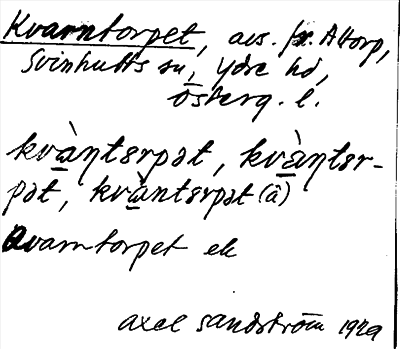 Kvarntorpet, avs. fr. Altorp,
Svinhults sn, Ydre hd,
Österg. l.
kvàṇtɜrpət, kvàṇtɜr-
pət, kvàntɜrpət (â)
Qvarntorpet ek
Axel Sandström 1929